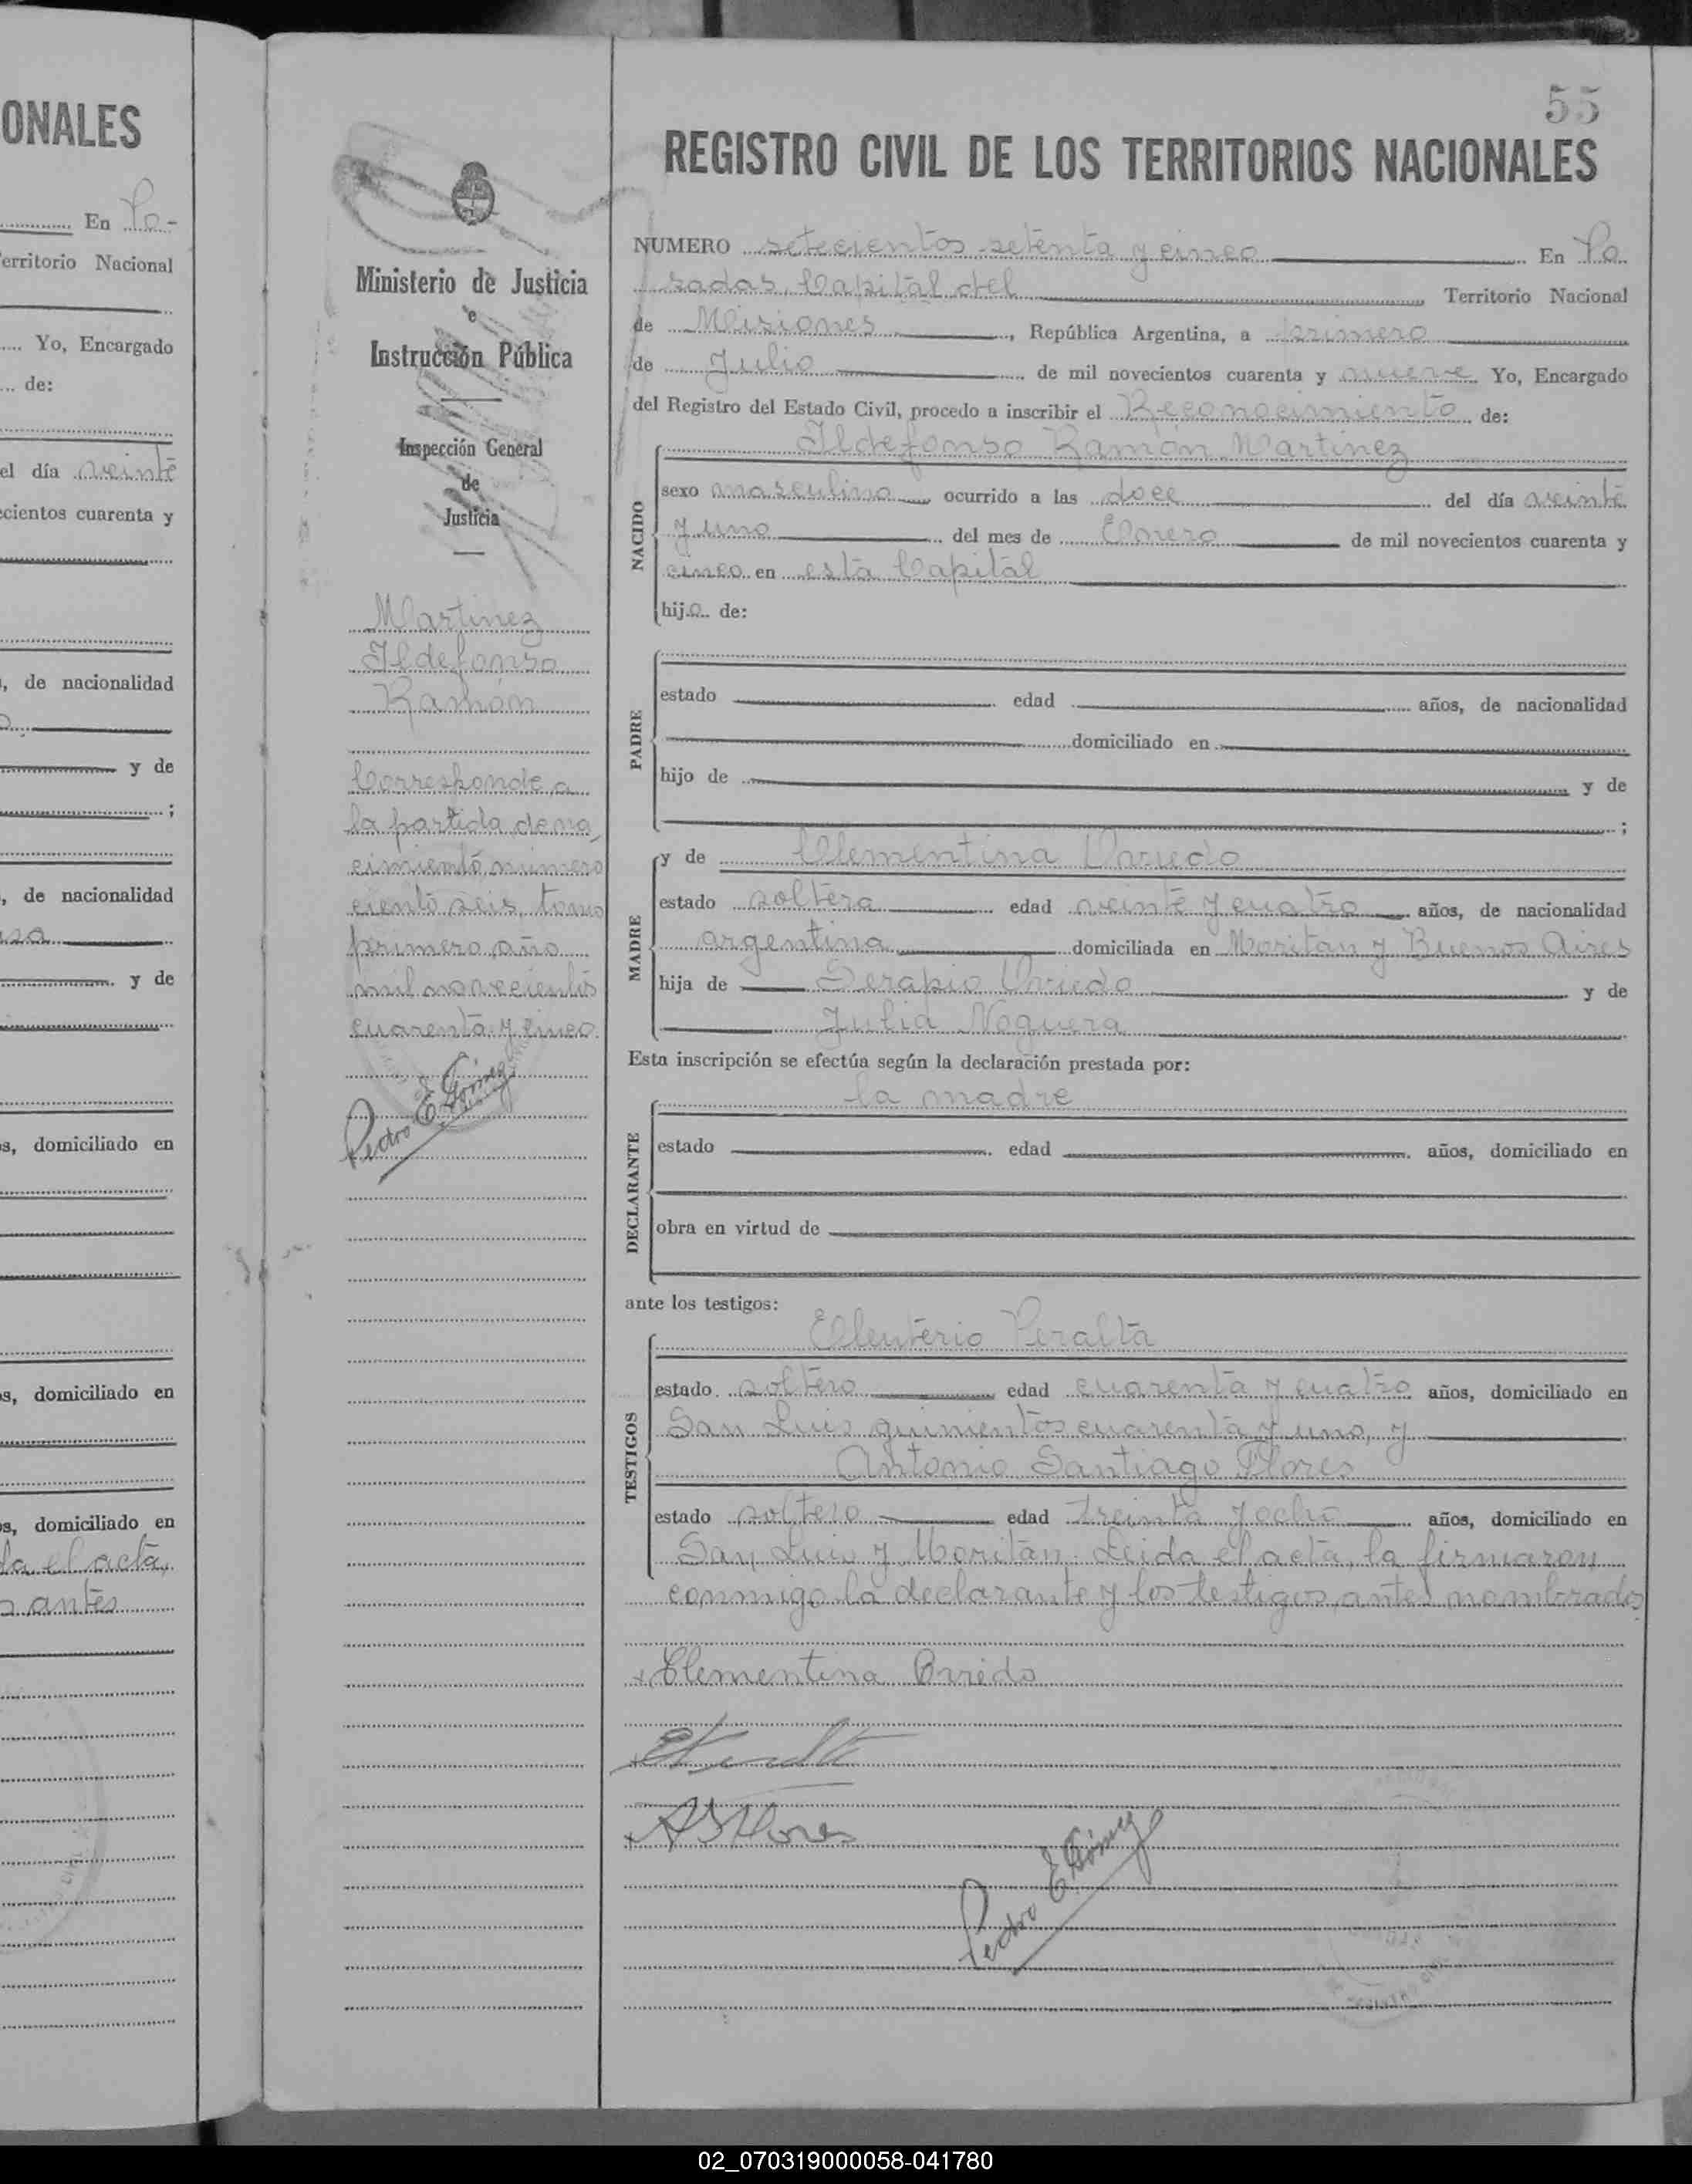 ONALES
En Po-
erritorio Nacional
Yo, Encargado
de:
el día veinte
cientos cuarenta y
, de nacionalidad
y de
;
, de nacionalidad
y de
s, domiciliado en
s, domiciliado en
s, domiciliado en
da el acta,
antes
Ministerio de Justicia
e
Instrucción Pública
Inspección General
de
Justicia
Martinez
Ildefonso
Ramón
Corresponde a
la partida de na
cimiento número
ciento seis, tomo
primero, año
mil novecientos
cuarenta y cinco.
Pedro E. Gómez
55
REGISTRO CIVIL DE LOS TERRITORIOS NACIONALES
NUMERO setecientos setenta y cinco En Po
sadas, Capital del Territorio Nacional
de Misiones, República Argentina, a primero
de Julio de mil novecientos cuarenta y nueve Yo, Encargado
del Registro del Estado Civil, procedo a inscribir el Reconocimiento de:
Ildefonso Ramón Martinez
NACIDO
sexo masculino ocurrido a las doce del día veinte
y uno del mes de Enero de mil novecientos cuarenta y
cinco en esta Capital
hijo de:
PADRE
estado edad años, de nacionalidad
domiciliado en
hijo de y de
;
MADRE
y de Clementina Oviedo
estado soltera edad veinte y cuatro años, de nacionalidad
argentina domiciliada en Moritan y Buenos Aires
hija de Serapio Oviedo y de
Julia Noguera
Esta inscripción se efectúa según la declaración prestada por:
la madre
DECLARANTE
estado edad años, domiciliado en
obra en virtud de
ante los testigos:
Eleuterio Peralta
TESTIGOS
estado soltero edad cuarenta y cuatro años, domiciliado en
San Luis quinientos cuarenta y uno, y
Antonio Santiago Flores
estado soltero edad treinta y ocho años, domiciliado en
San Luis y Moritán. Leida el acta, la firmaron
conmigo la declarante y los testigos antes nombrados
Clementina Oviedo
A S Flores
Pedro E. Gómez
02_070319000058-041780